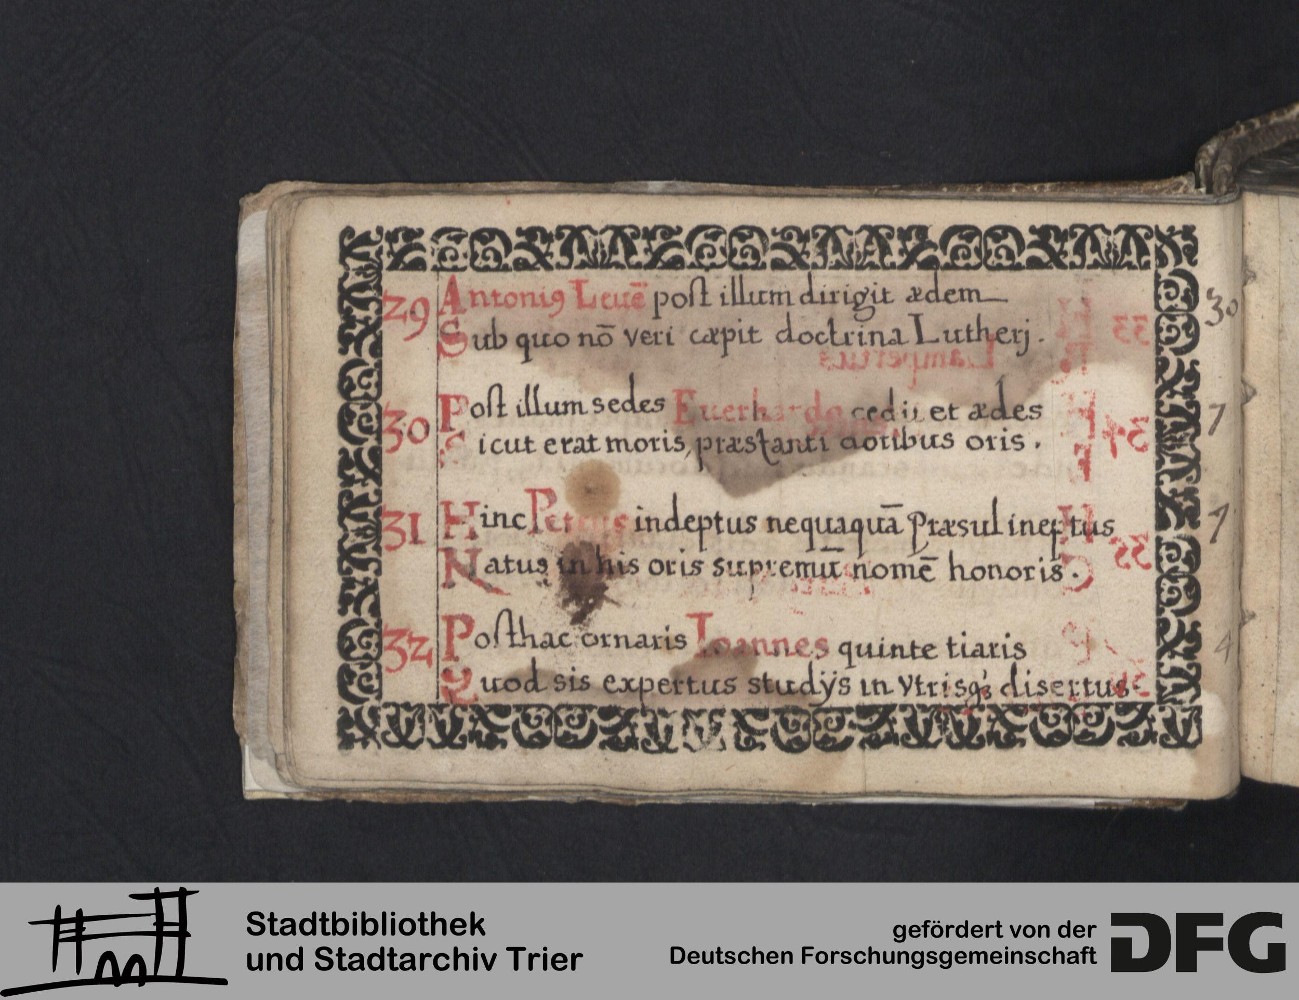 29 Antoniꝰ Leuē post illum dirigit ædem
Sub quo nō veri cæpit doctrina Lutherj.
30 Post illum sedes Euerhardo cedit et ædes
Sicut erat moris, præstanti dotibus oris.
31 Hinc Petrus indeptus nequaquā Præsul ineptus
Natus in his oris supremū nomē honoris.
32 Posthac ornaris Ioannes quinte tiaris
Quod sis expertus studÿs in vtrisqꝫ disertus.
30
7
7
4
Stadtbibliothek
und Stadtarchiv Trier
gefördert von der
Deutschen Forschungsgemeinschaft
DFG